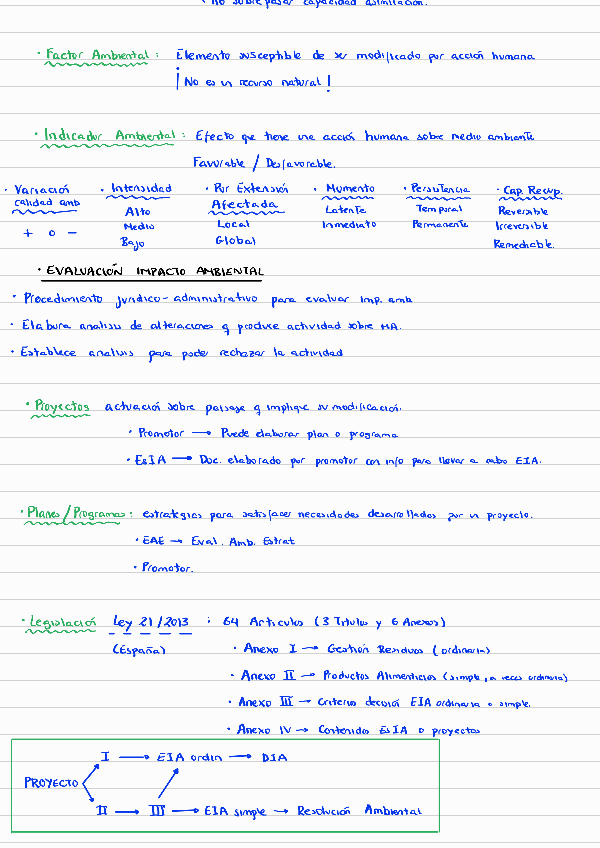 · No sobrepasar capacidad asimilación.
· Factor Ambiental: Elemento susceptible de ser modificado por acción humana
¡No es un recurso natural!
· Indicador Ambiental: Efecto que tiene una acción humana sobre medio ambiente
Favorable / Desfavorable.
· Variación · Intensidad · Por Extensión · Momento · Persistencia · Cap. Recup.
calidad amb Alto Afectada Latente Temporal Reversible
+ o - Medio Local Inmediato Permanente Irreversible
Bajo Global Remediable.
· EVALUACIÓN IMPACTO AMBIENTAL
· Procedimiento jurídico-administrativo para evaluar imp. amb
· Elabora analisis de alteraciones q produce actividad sobre MA.
· Establece analisis para poder rechazar la actividad
· Proyectos actuación sobre paisaje q implique su modificación.
· Promotor → Puede elaborar plan o programa
· EsIA → Doc. elaborado por promotor con info para llevar a cabo EIA.
· Planes/Programas: estrategias para satisfacer necesidades desarrollados por un proyecto.
· EAE → Eval. Amb. Estrat
· Promotor.
· Legislación Ley 21/2013 : 64 Articulos (3 Titulos y 6 Anexos)
(España) · Anexo I → Gestión Residuos (ordinaria)
· Anexo II → Productos Alimenticios (simple, a veces ordinaria)
· Anexo III → Criterio decisión EIA ordinaria o simple.
· Anexo IV → Contenidos EsIA o proyectos
I → EIA ordin → DIA
PROYECTO
II → III → EIA simple → Resolución Ambiental